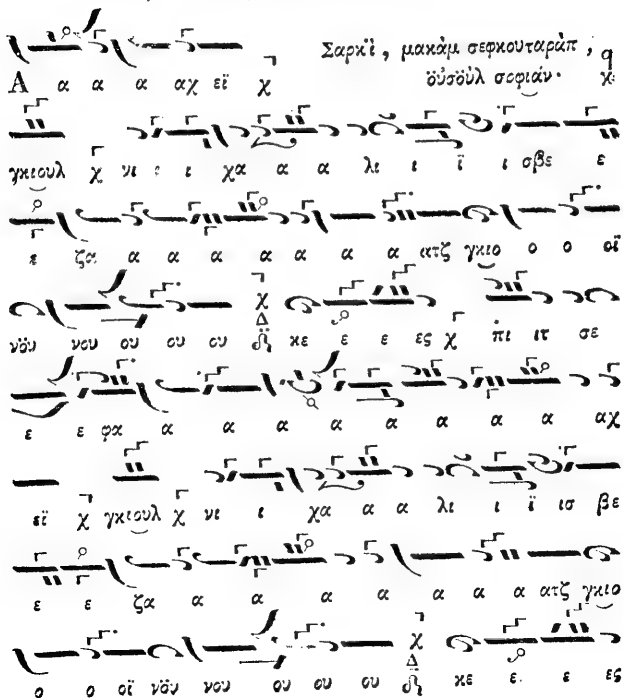 Σαρκὶ, μακὰμ σεφκουταρὰπ,
οὐσοὺλ σοφιάν. χ
Α α α α αχ εϊ χ
γκιουλ χ νι ι ι χα α α λι ι ϊ ι σβε ε
ε ζα α α α α α α α ατζ γκιο ο ο οϊ
νόϋ νου ου ου ου χ κε ε ε ες χ πι ιτ σε
ε ε φα α α α α α α α α αχ
εϊ χ γκιουλ χ νι ι χα α α λι ι ϊ ισ βε
ε ε ζα α α α α α α α ατζ γκιο
ο ο οϊ νόϋ νου ου ου ου χ κε ε. ε ες